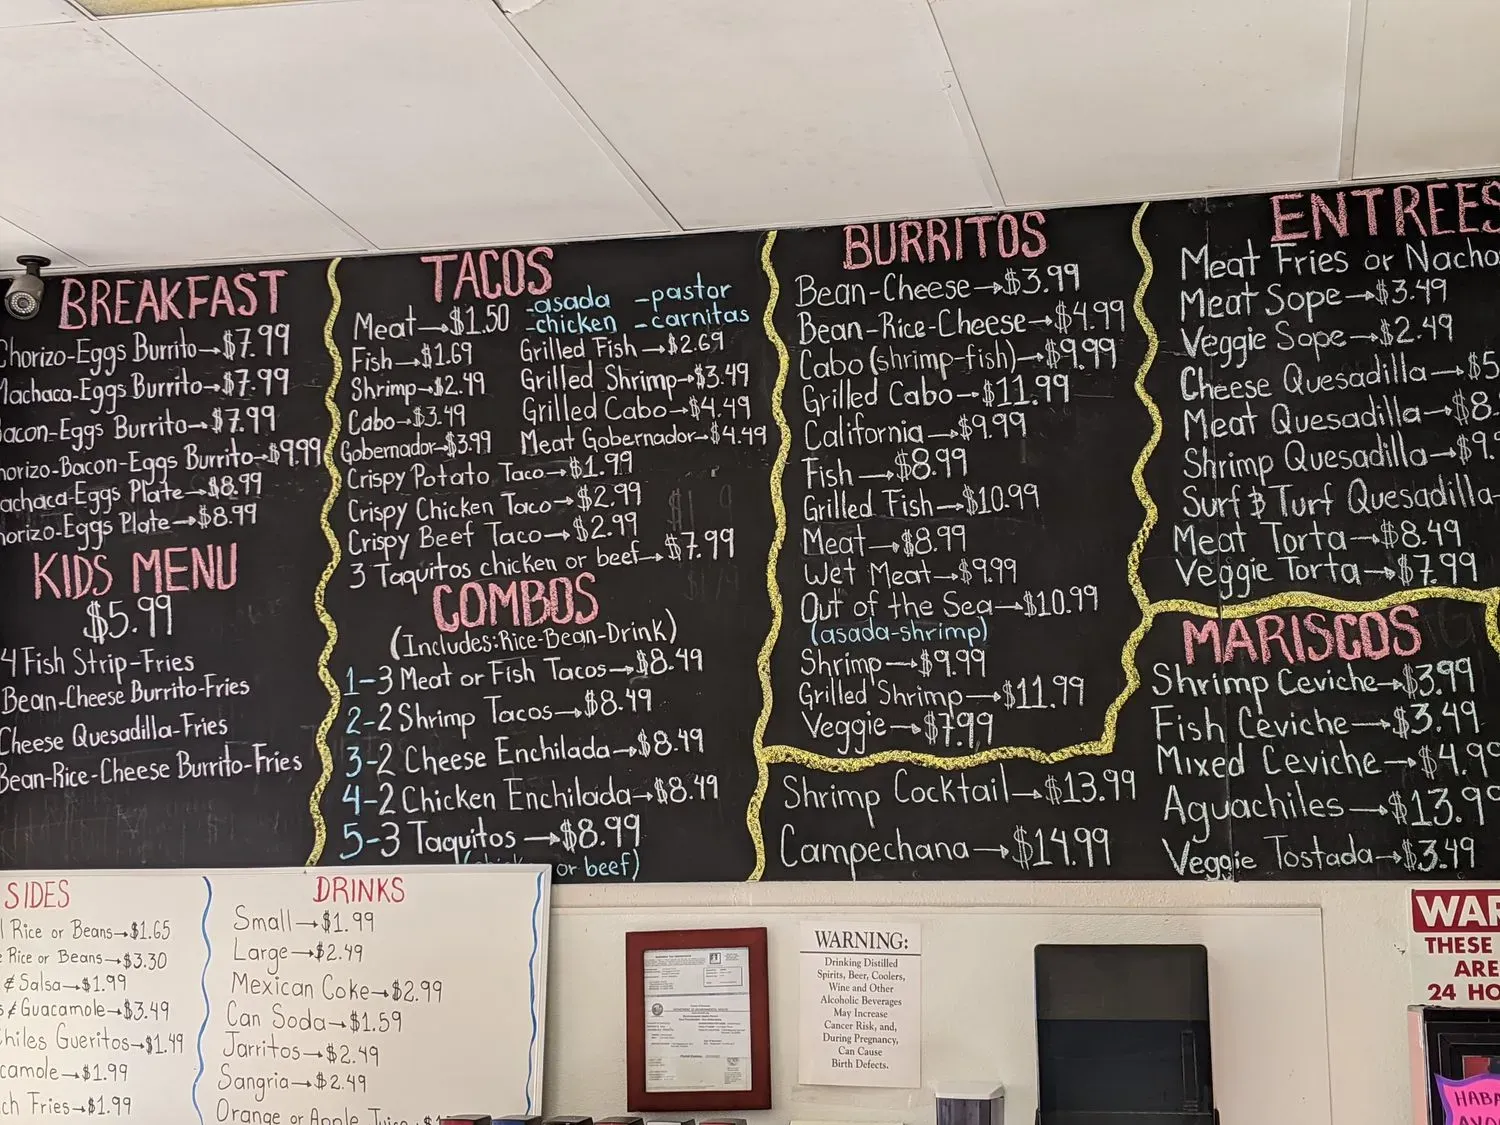 BREAKFAST
Chorizo-Eggs Burrito→$7.99
Machaca-Eggs Burrito→$7.99
Bacon-Eggs Burrito→$7.99
Chorizo-Bacon-Eggs Burrito→$9.99
Machaca-Eggs Plate→$8.99
Chorizo-Eggs Plate→$8.99
KIDS MENU
$5.99
4 Fish Strip-Fries
Bean-Cheese Burrito-Fries
Cheese Quesadilla-Fries
Bean-Rice-Cheese Burrito-Fries
TACOS
Meat→$1.50 -asada -pastor
-chicken -carnitas
Fish→$1.69 Grilled Fish→$2.69
Shrimp→$2.49 Grilled Shrimp→$3.49
Cabo→$3.49 Grilled Cabo→$4.49
Gobernador→$3.99 Meat Gobernador→$4.49
Crispy Potato Taco→$1.99
Crispy Chicken Taco→$2.99
Crispy Beef Taco→$2.99
3 Taquitos chicken or beef→$7.99
COMBOS
(Includes:Rice-Bean-Drink)
1-3 Meat or Fish Tacos→$8.49
2-2 Shrimp Tacos→$8.49
3-2 Cheese Enchilada→$8.49
4-2 Chicken Enchilada→$8.49
5-3 Taquitos→$8.99
or beef)
BURRITOS
Bean-Cheese→$3.99
Bean-Rice-Cheese→$4.99
Cabo (shrimp-fish)→$9.99
Grilled Cabo→$11.99
California→$9.99
Fish→$8.99
Grilled Fish→$10.99
Meat→$8.99
Wet Meat→$9.99
Out of the Sea→$10.99
(asada-shrimp)
Shrimp→$9.99
Grilled Shrimp→$11.99
Veggie→$7.99
Shrimp Cocktail→$13.99
Campechana→$14.99
ENTREES
Meat Fries or Nacho
Meat Sope→$3.49
Veggie Sope→$2.49
Cheese Quesadilla→$5
Meat Quesadilla→$8.
Shrimp Quesadilla→$9.
Surf & Turf Quesadilla-
Meat Torta→$8.49
Veggie Torta→$7.99
MARISCOS
Shrimp Ceviche→$3.99
Fish Ceviche→$3.49
Mixed Ceviche→$4.99
Aguachiles→$13.99
Veggie Tostada→$3.49
SIDES
Rice or Beans→$1.65
Rice or Beans→$3.30
& Salsa→$1.99
& Guacamole→$3.49
Chiles Gueritos→$1.49
camole→$1.99
ch Fries→$1.99
DRINKS
Small→$1.99
Large→$2.49
Mexican Coke→$2.99
Can Soda→$1.59
Jarritos→$2.49
Sangria→$2.49
Orange or Apple Juice
WARNING:
Drinking Distilled
Spirits, Beer, Coolers,
Wine and Other
Alcoholic Beverages
May Increase
Cancer Risk, and,
During Pregnancy,
Can Cause
Birth Defects.
WAR
THESE
ARE
24 HO
HABA